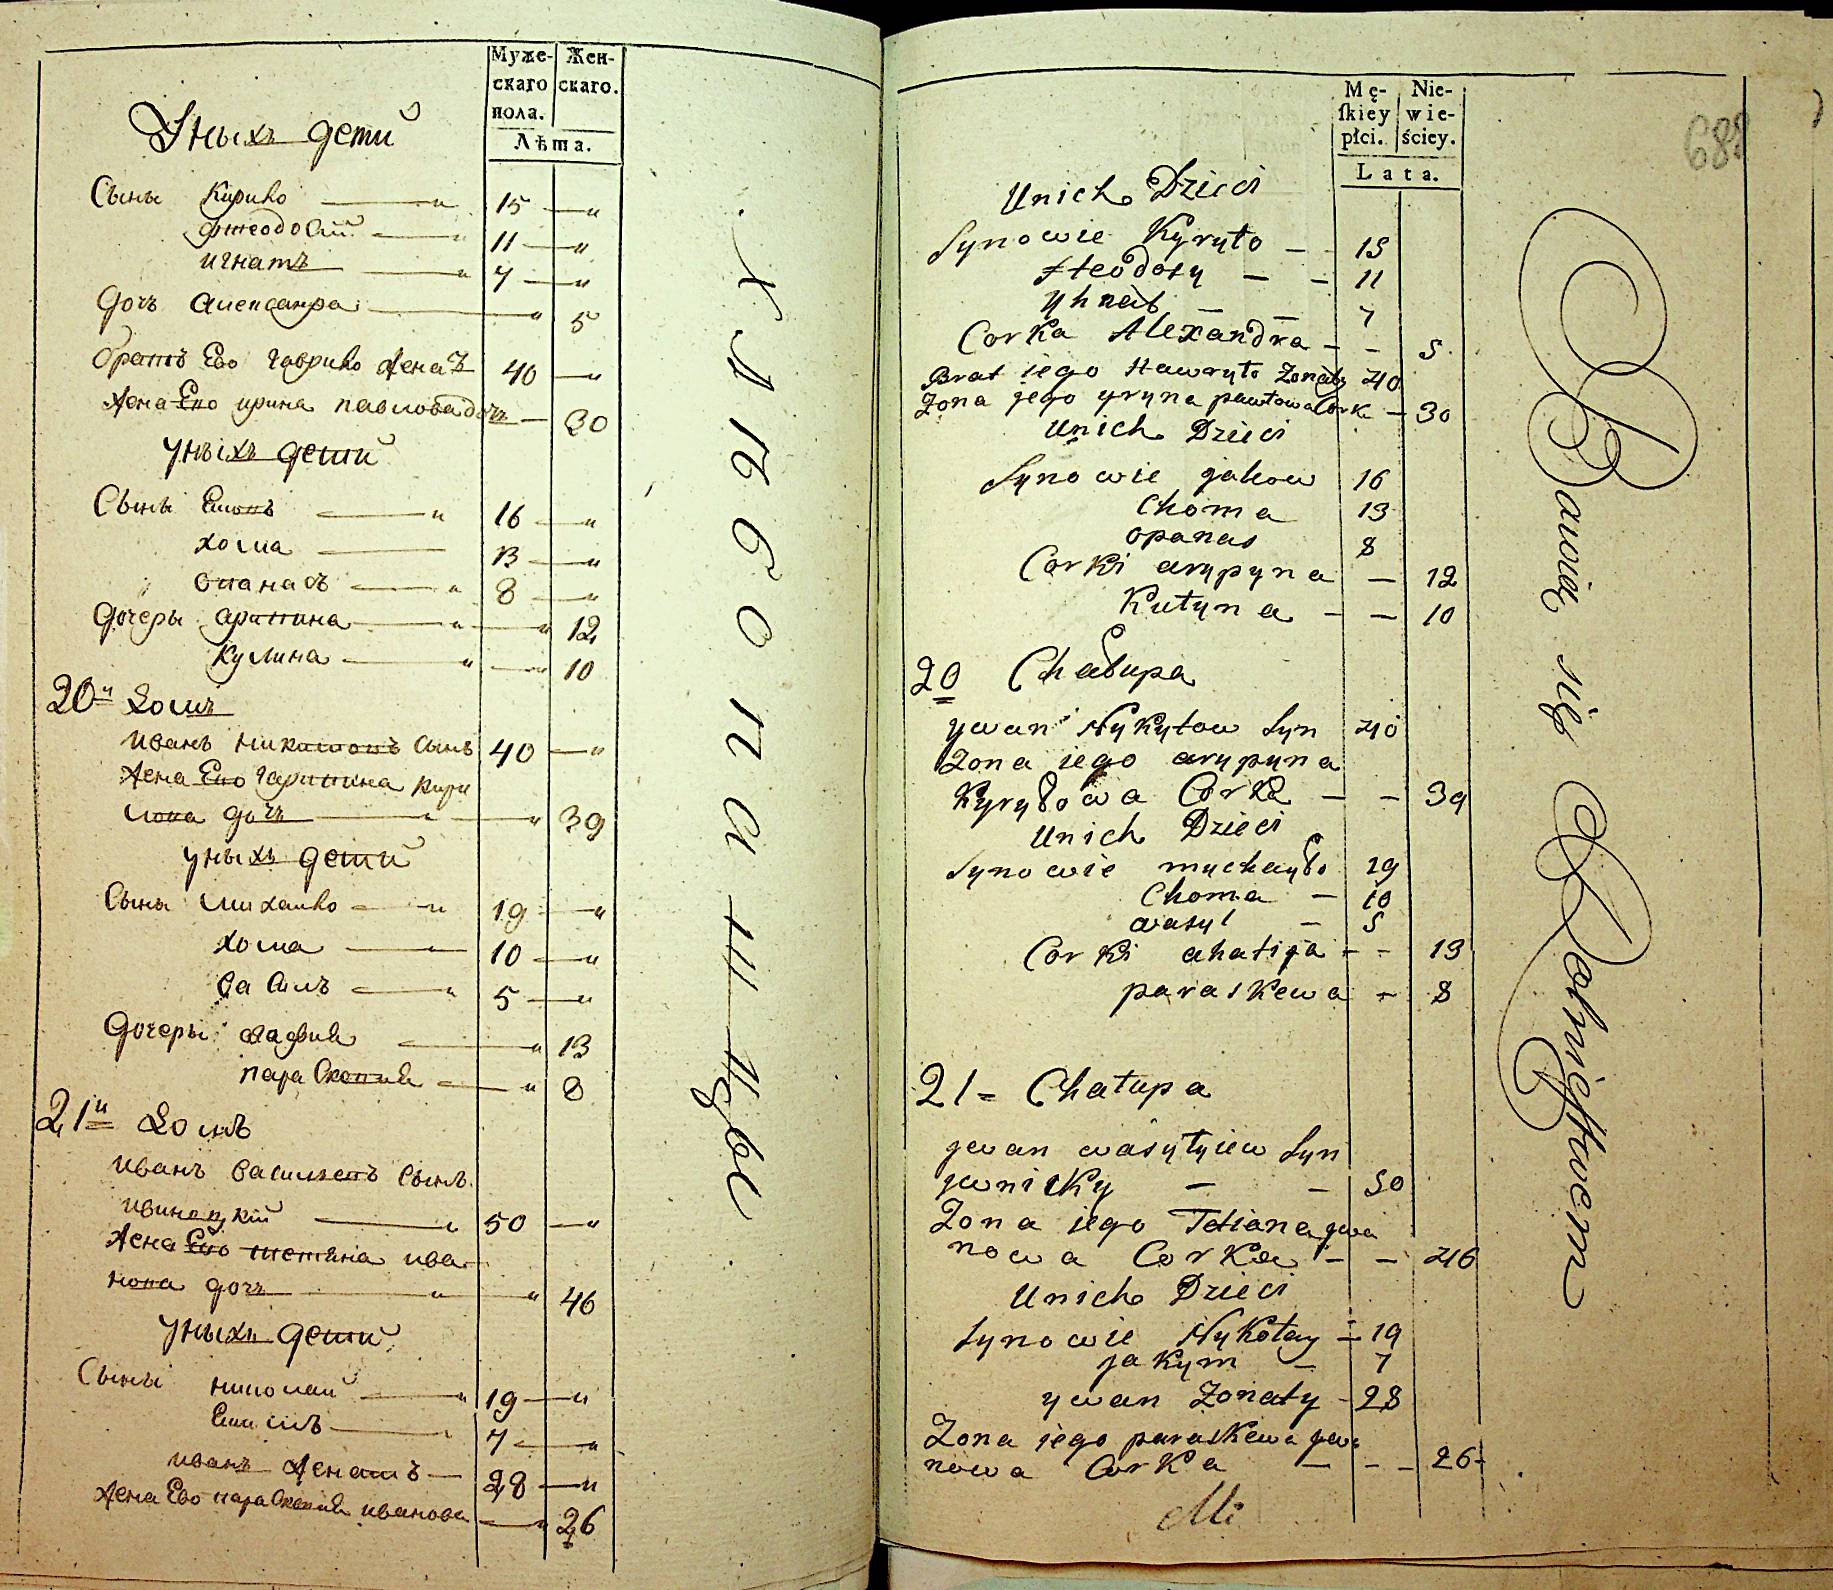 Муже- Жен-
скаго скаго.
пола.
Лѣта.
Уныхъ дети
Сыны Кирило 15
Фтеодосий 11
игнатъ 7
дочь александра 5
братъ Ево гаврило женатъ 40
жена Ево ирина павлова дочь 30
уныхъ дети
Сыны 16
хома 13
опанасъ 8
дочеры арипина 12
кулина 10
20й Домъ
иванъ никитовъ сынъ 40
жена Ево гарипина кири
лова дочь 39
уныхъ дети
Сыны михаило 19
хома 10
василь 5
дочеры 13
параскопия 8
21й Домъ
иванъ васильевъ сынъ
ивинецкий 50
жена Ево тетяна ива
нова дочь 46
уныхъ дети
Сыны николай 19
Екимъ 7
иванъ женатъ 28
жена Ево параскопия иванова 26
хлебопашцы
Mę- Nie-
ſkiey wie-
płci. ściey.
Lata.
688
Unich Dzieci
Synowie Kyryło 15
fteodosy 11
Yhnat 7
Corka Alexandra 5
Brat iego Hawryło Zonaty 40
Zona jego yryna pawłowa Cork 30
Unich Dzieci
Synowie jakow 16
Choma 13
opanas 8
Corki arypyna 12
Kulyna 10
20 Chałupa
ywan Nykytow Syn 40
Zona iego arypyna
Kyryłowa Corka 39
Unich Dzieci
Synowie mychayło 19
Choma 10
wasyl 5
Corki ahafija 13
paraskewa 8
21 Chałupa
jwan wasylyiew Syn
jwnicky 50
Zona iego Tetiana jwa
nowa Corka 46
Unich Dzieci
Synowie Nykołay 19
jakym 7
ywan Zonaty 28
Zona jego paraskewa jwa
nowa Corka 26
Mi
Bawią się Rolnictwem